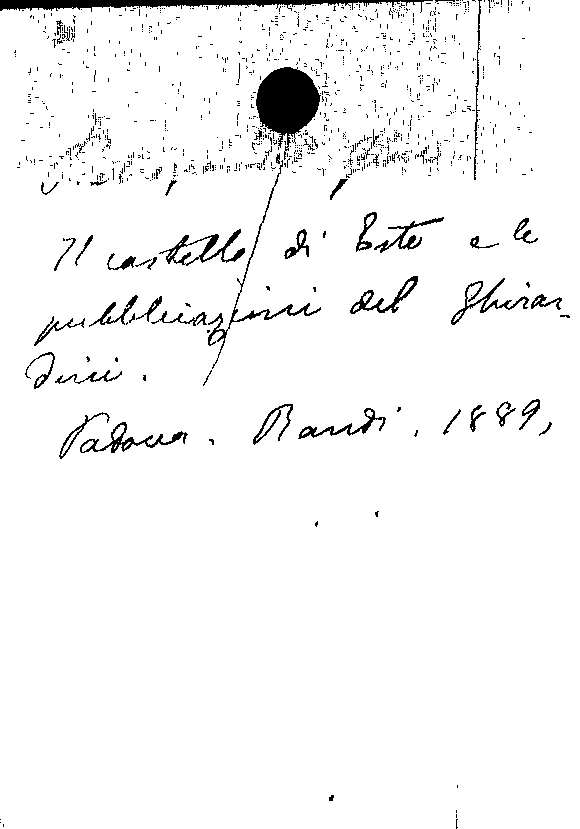 Il castello di Este e le
pubblicazioni del Ghirar-
dini.
Padova. Randi. 1889,